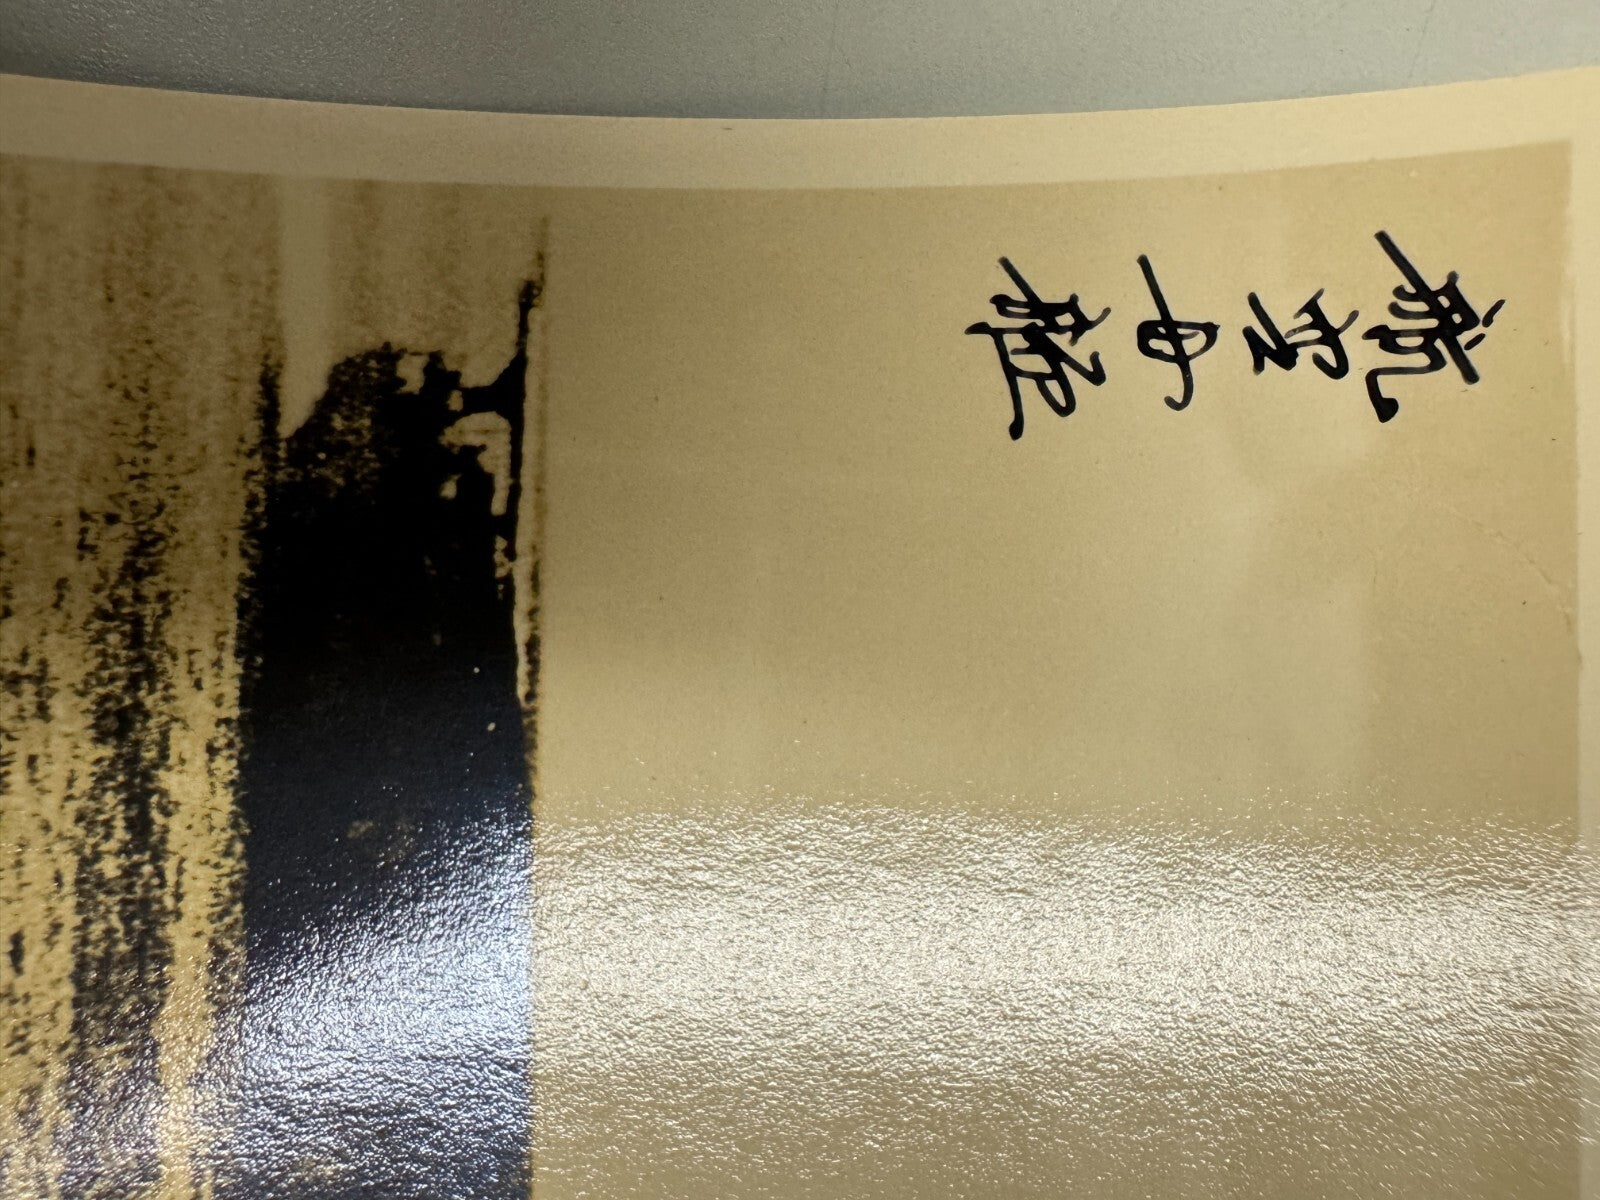 航空母艦